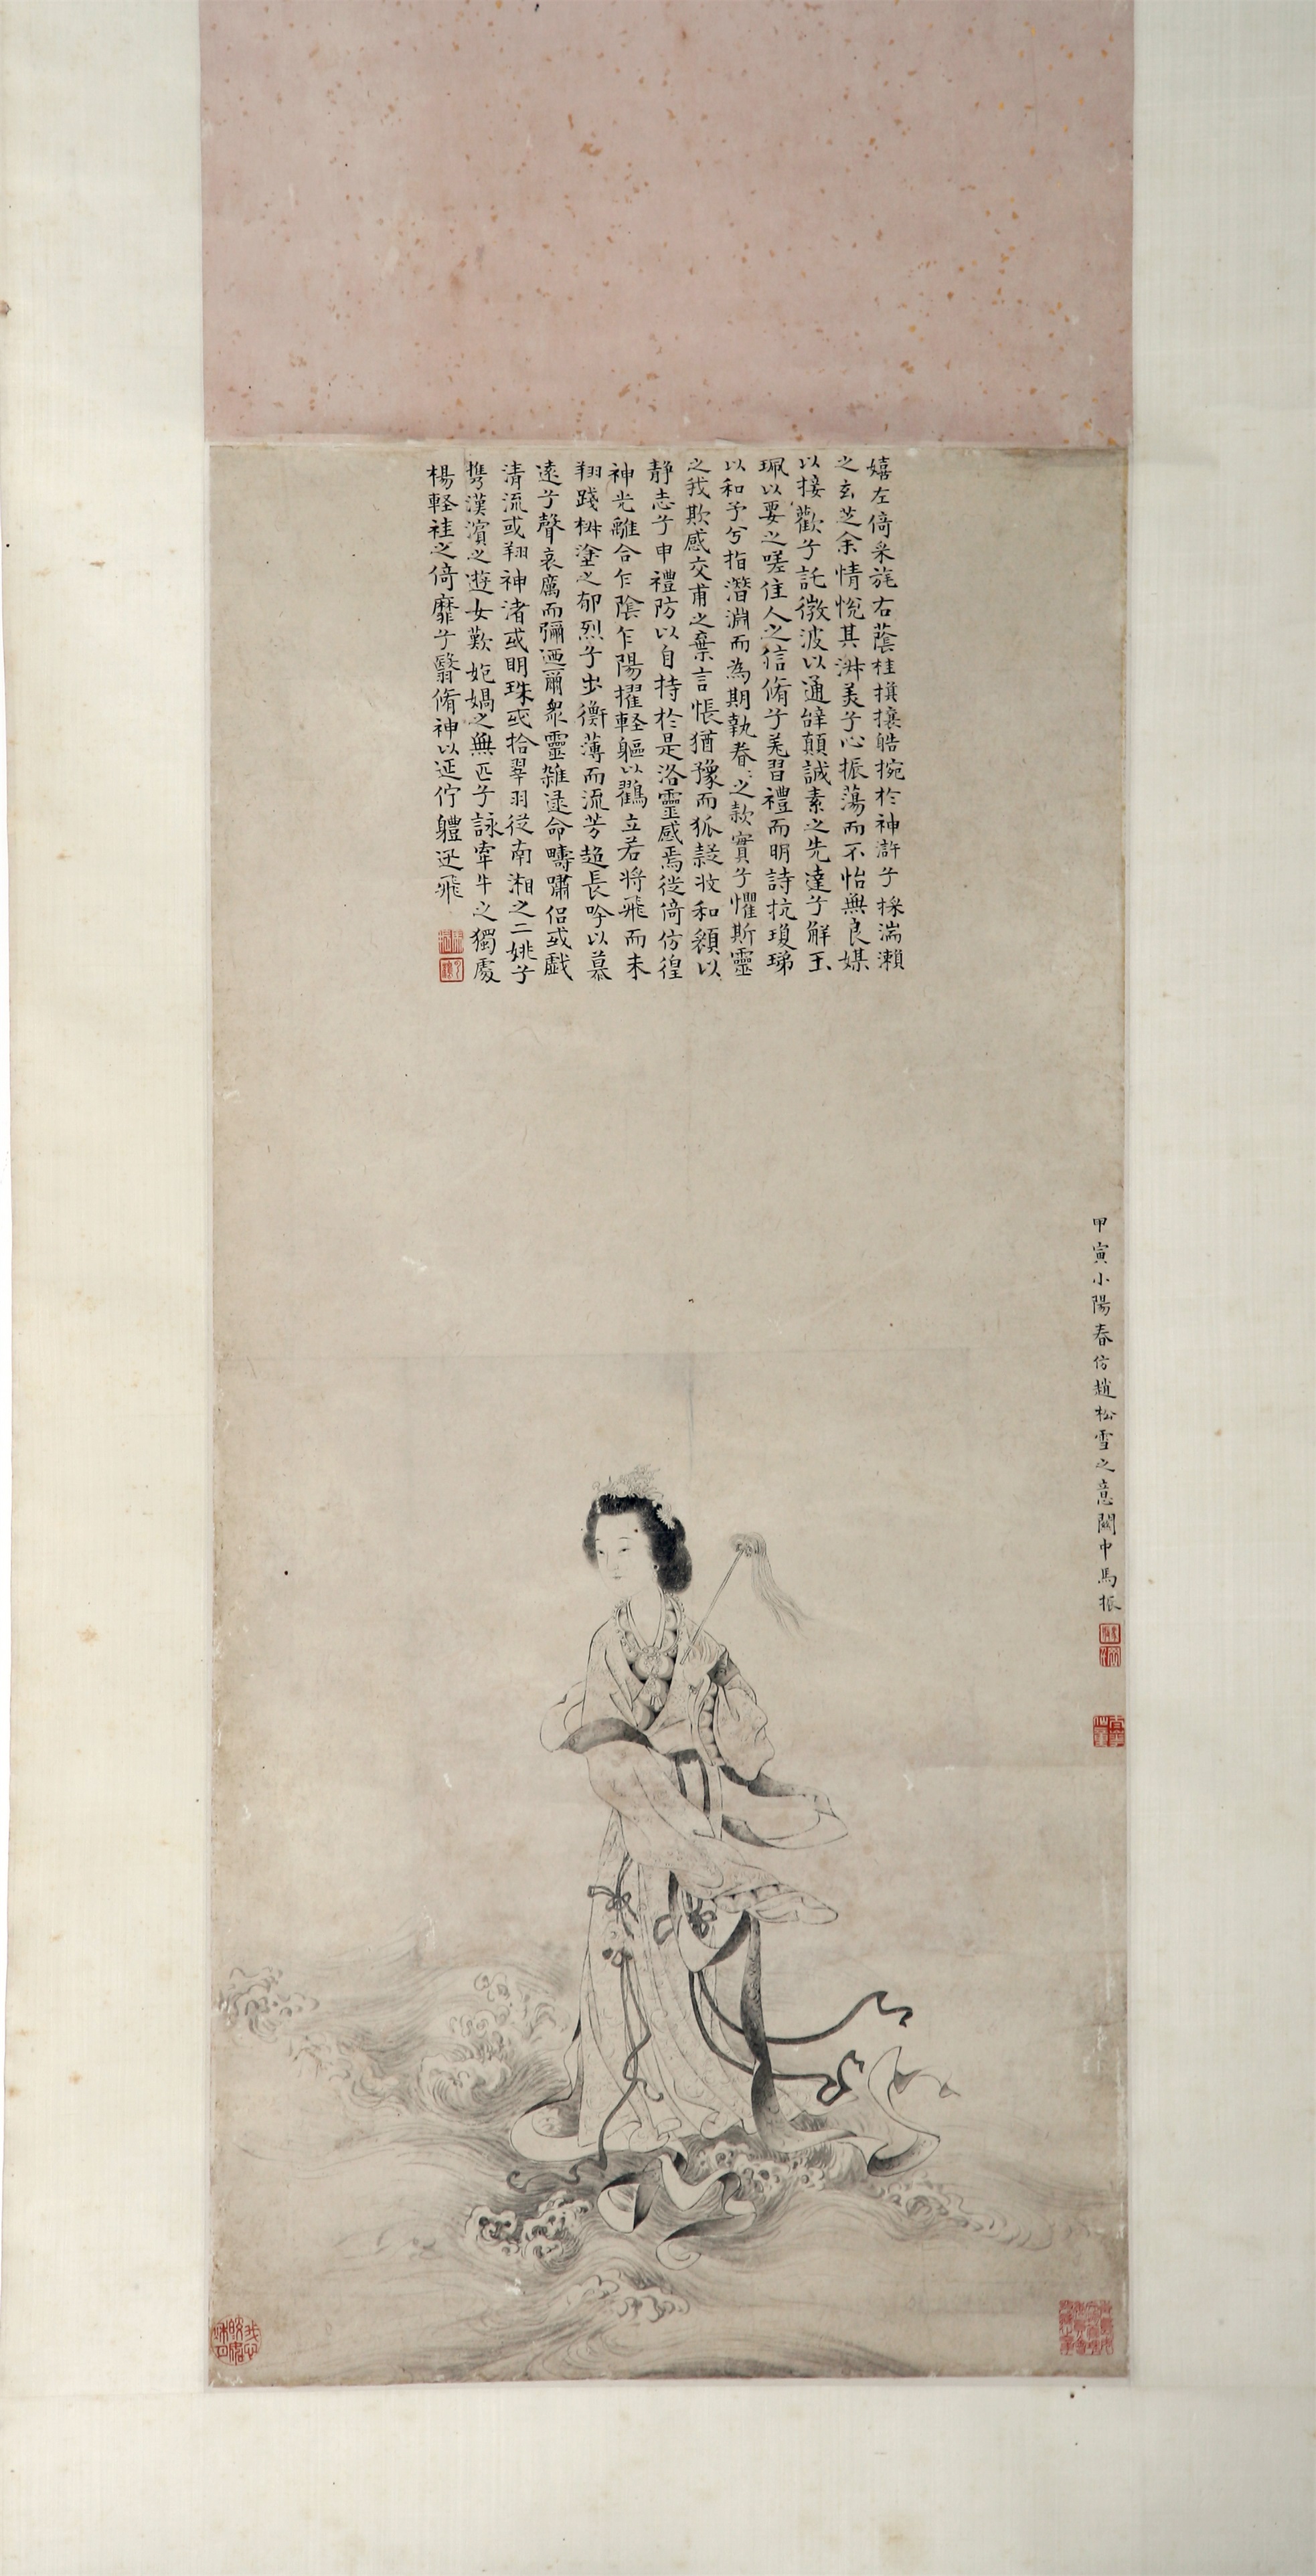 嬉左倚采旄右蔭桂旗攘皓捥於神滸兮採湍瀨
之玄芝余情悅其淑美兮心振蕩而不怡無良媒
以接歡兮託微波以通辭願誠素之先達兮解玉
珮以要之嗟佳人之信脩兮羌習禮而明詩抗瓊珶
以和予兮指潛淵而為期執眷〻之款實兮懼斯靈
之我欺感交甫之棄言悵猶豫而狐疑收和顏以
靜志兮申禮防以自持於是洛靈感焉徙倚仿徨
神光離合乍陰乍陽擢輕軀以鶴立若將飛而未
翔踐椒塗之郁烈兮步蘅薄而流芳超長吟以慕
遠兮聲哀厲而彌邇爾眾靈雜遝命疇嘯侶或戲
清流或翔神渚或明珠或拾翠羽從南湘之二姚兮
攜漢濱之遊女歎媧之無匹兮詠牽牛之獨處
楊輕袿之倚靡兮翳脩神以延佇軆迅飛
甲寅小陽春仿趙松雪之意關中馬振